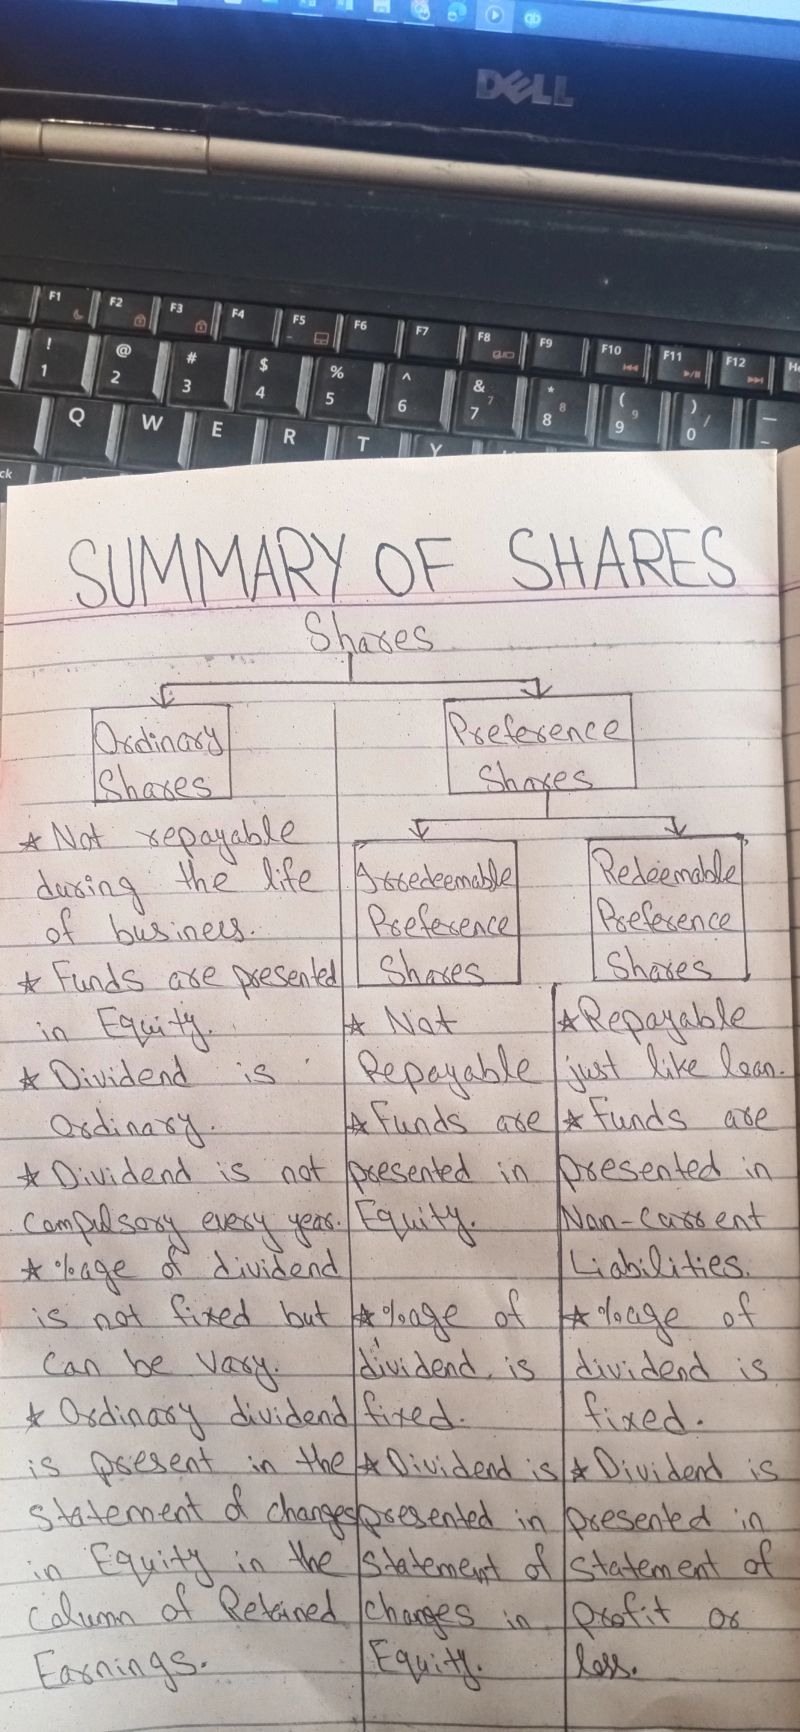 DELL
F1
F2
F3
F4
F5
F6
F7
F8
F9
F10
F11
F12
!
1
@
2
#
3
$
4
%
5
^
6
&
7
7
*
8
8
(
9
9
)
0
/
Q
W
E
R
T
Y
ck
SUMMARY OF SHARES
Shares
Ordinary
Shares
* Not repayable
during the life
of business.
* Funds are presented
in Equity.
* Dividend is
Ordinary.
* Dividend is not
compulsory every year.
* %age of dividend
is not fixed but
can be vary.
* Ordinary dividend
is present in the
statement of changes
in Equity in the
column of Retained
Earnings.
Preference
Shares
Irredeemable
Preference
Shares
* Not
Repayable
* Funds are
presented in
Equity.
* %age of
dividend is
fixed.
* Dividend is
presented in
Statement of
changes in
Equity.
Redeemable
Preference
Shares
* Repayable
just like loan.
* Funds are
presented in
Non-current
Liabilities.
* %age of
dividend is
fixed.
* Dividend is
presented in
statement of
profit or
loss.